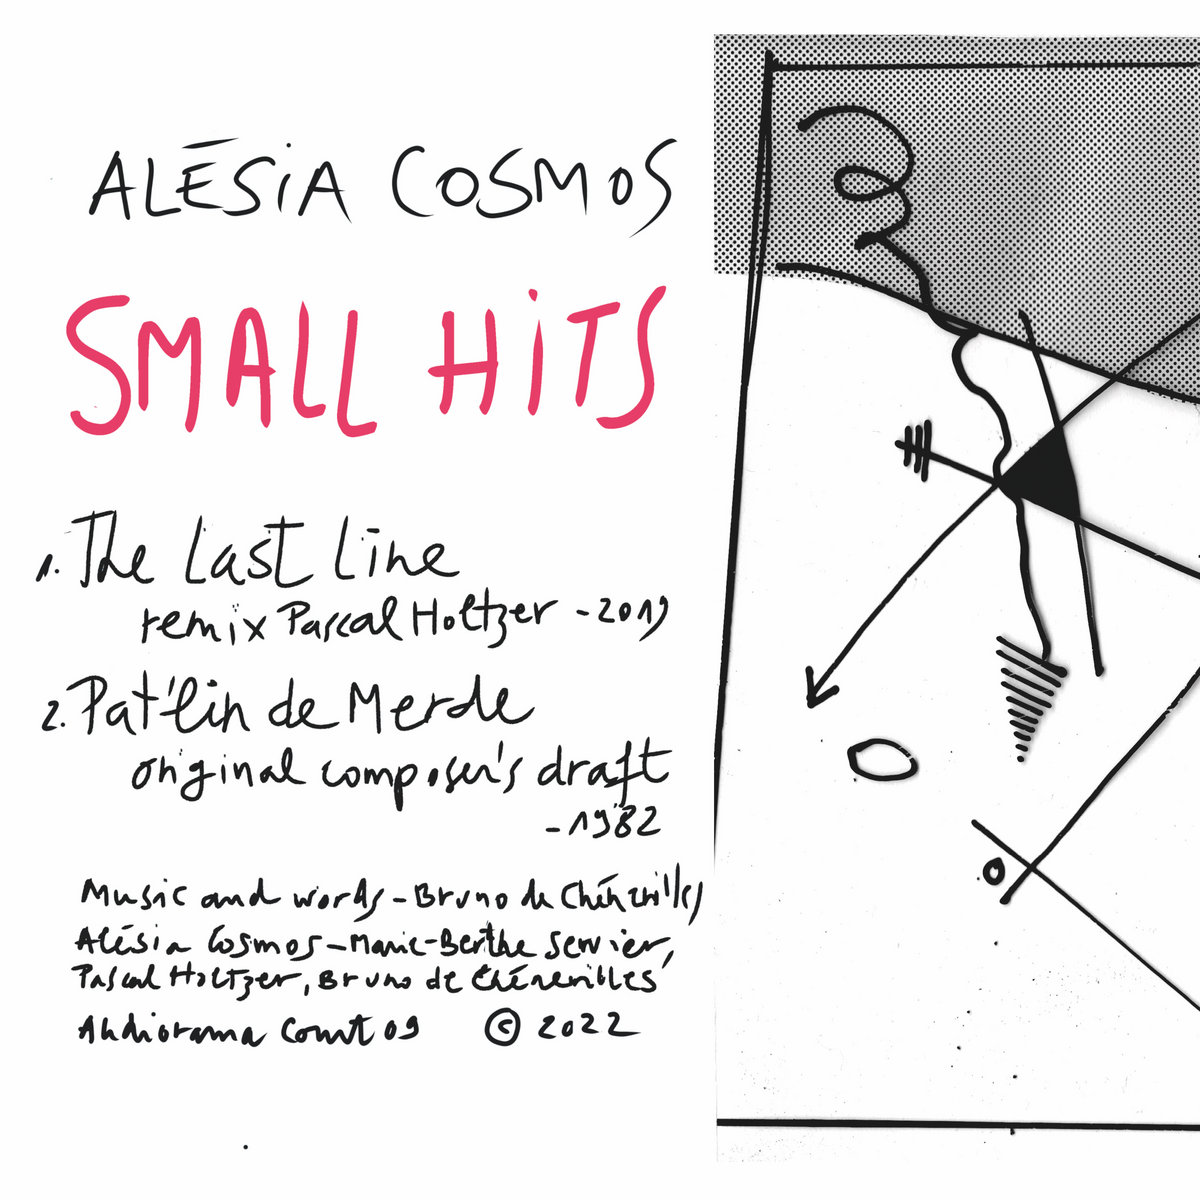 ALÉSiA COSMOS
SMALL HiTS
1. The Last Line
remix Pascal Holtzer - 2019
2. Pat'lin de Merde
original composer's draft
- 1982
Music and words - Bruno de Chénerilles
Alésia Cosmos - Marie-Berthe Servier,
Pascal Holtzer, Bruno de Chénerilles
Audiorama Court 09 © 2022